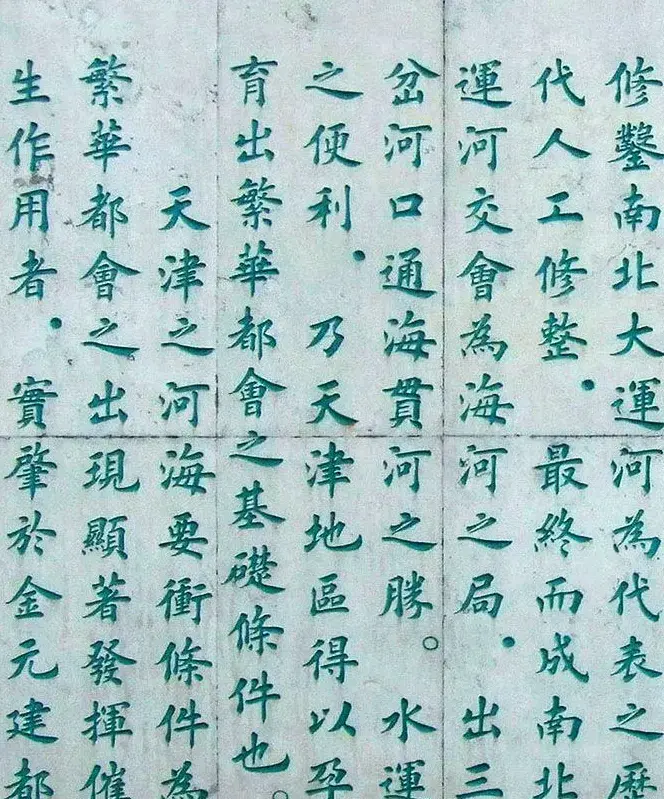 修鑿南北大運河為代表之歷
代人工修整．最終而成南北
運河交會為海河之局．出三
岔河口通海貫河之勝。水運
之便利．乃天津地區得以孕
育出繁華都會之基礎條件也。
天津之河海要衝條件為
繁華都會之出現顯著發揮催
生作用者．實肇於金元建都